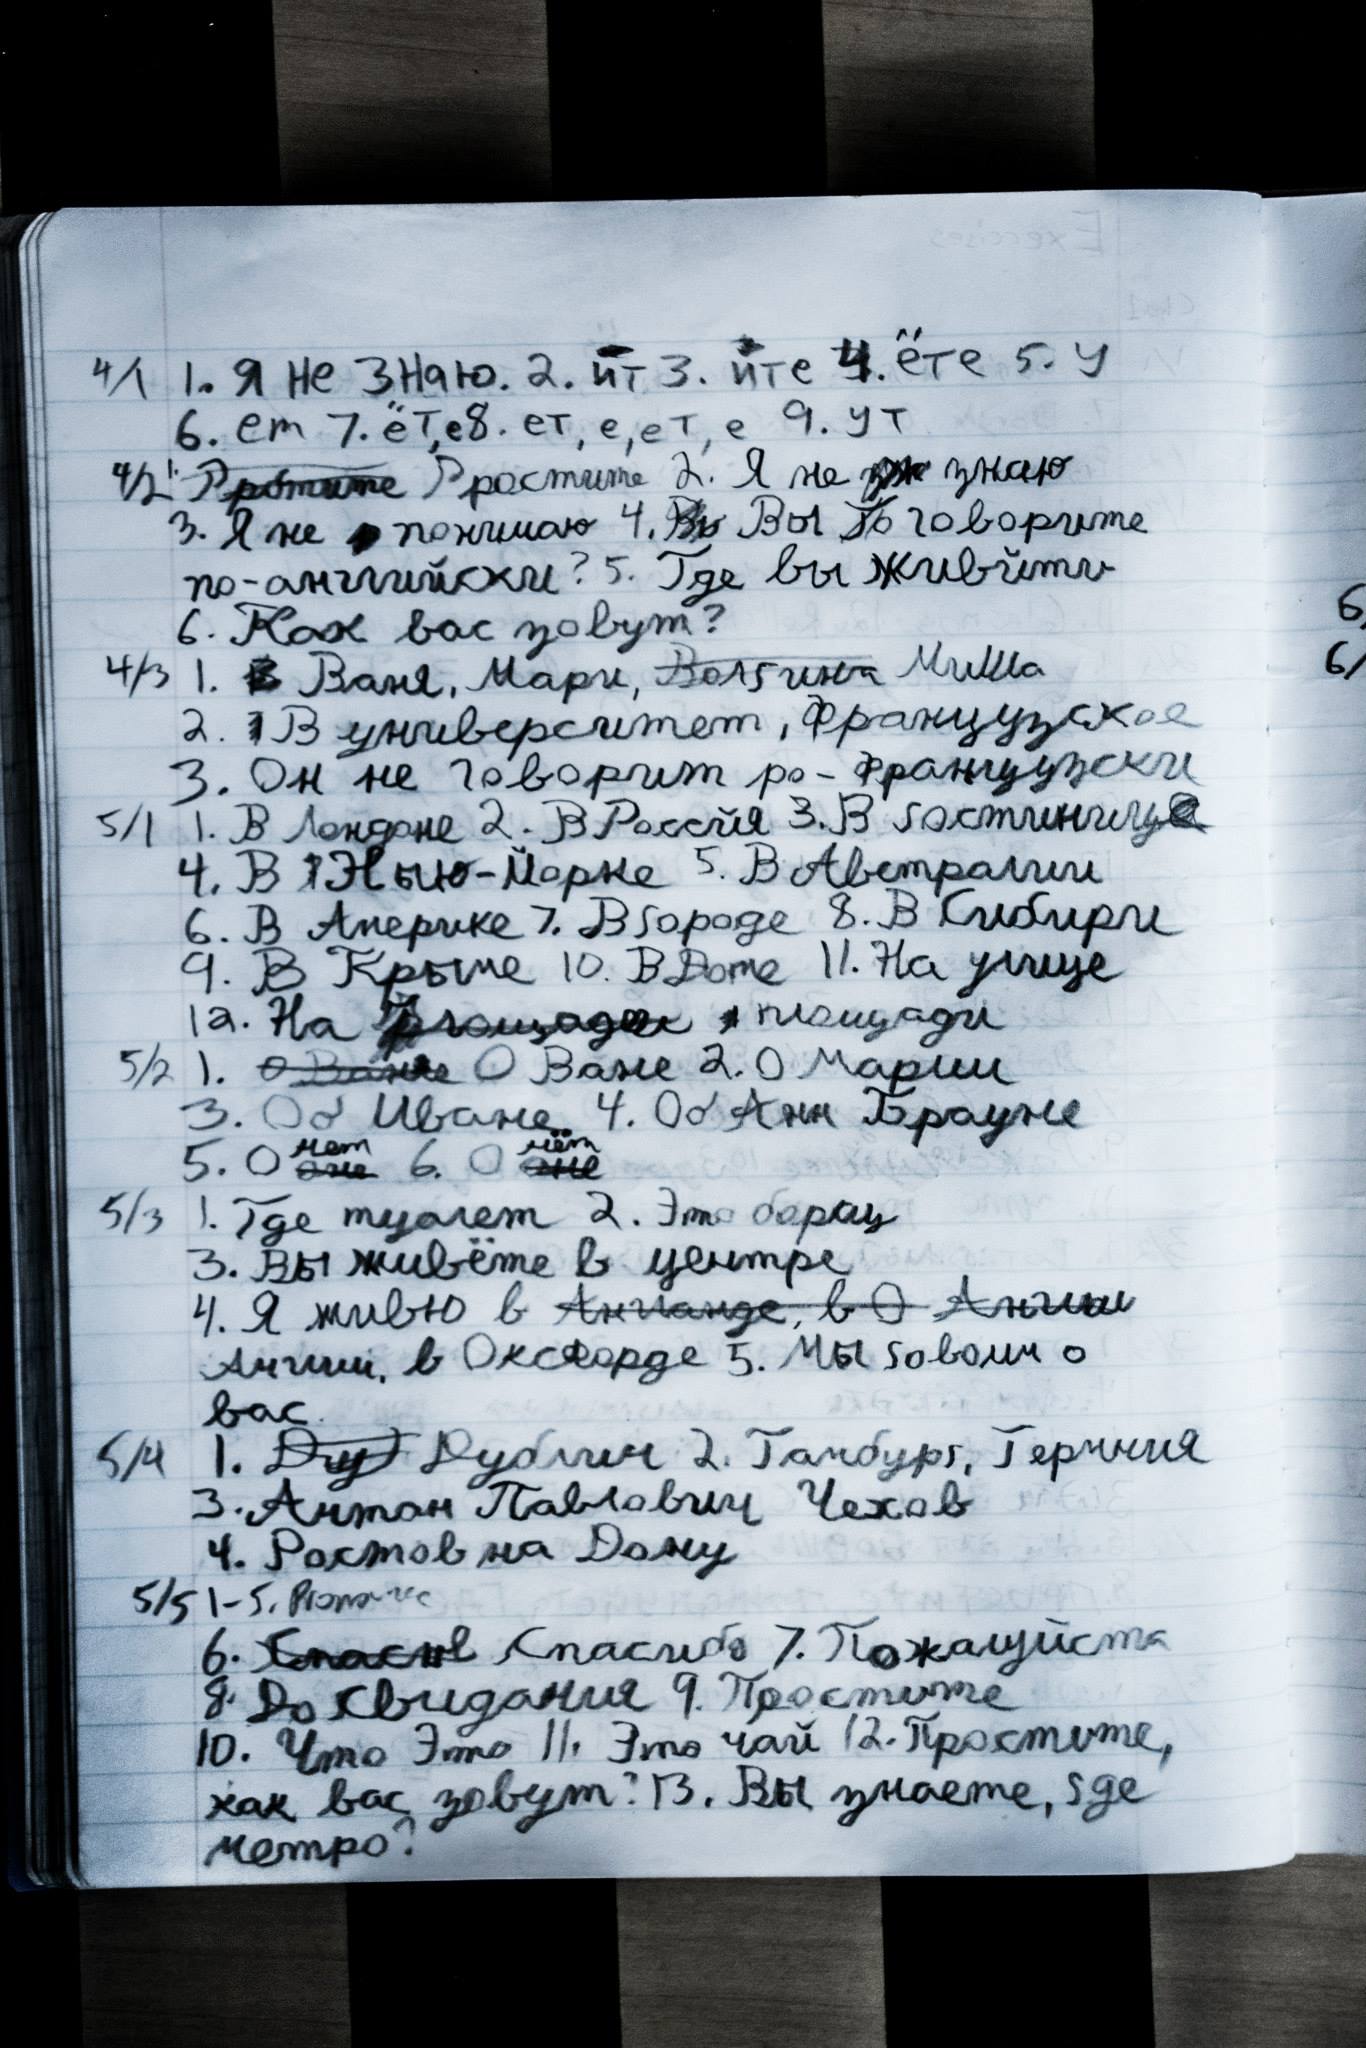 4/1 1. Я не знаю. 2. ит 3. ите 4. ёте 5. у
6. ет 7. ёт,е 8. ет, е, ет, е 9. ут
4/2 1. Простите 2. Я не знаю
3. Я не понимаю 4. Вы говорите
по-английски? 5. Где вы живйити
6. Как вас зовут?
4/3 1. Ваня, Мари, Миша
2. В университет, Французское
3. Он не говорит по-французски
5/1 1. В Лондоне 2. В Россйя 3. В гостинице
4. В Нью-Йорке 5. В Австралии
6. В Америке 7. В городе 8. В Сибири
9. В Крыме 10. В Доме 11. На улице
12. На площади
5/2 1. О Ване 2. О Марии
3. Об Иване 4. Об Анн Брауне
5. О чет 6. О чёт
5/3 1. Где туалет 2. Это
3. Вы живёте в центре
4. Я живю в
Англии, в Оксфорде 5. Мы говоим о
вас.
5/4 1. Дублин 2. Гамбург, Гермния
3. Антон Павлович Чехов
4. Ростов на Дону
5/5 1-5.
6. Спасибо 7. Пожалуйста
8. До Свидания 9. Простите
10. Что Это 11. Это чай 12. Простите,
как вас зовут? 13. Вы знаете, где
метро?
6/
6/
Exercises